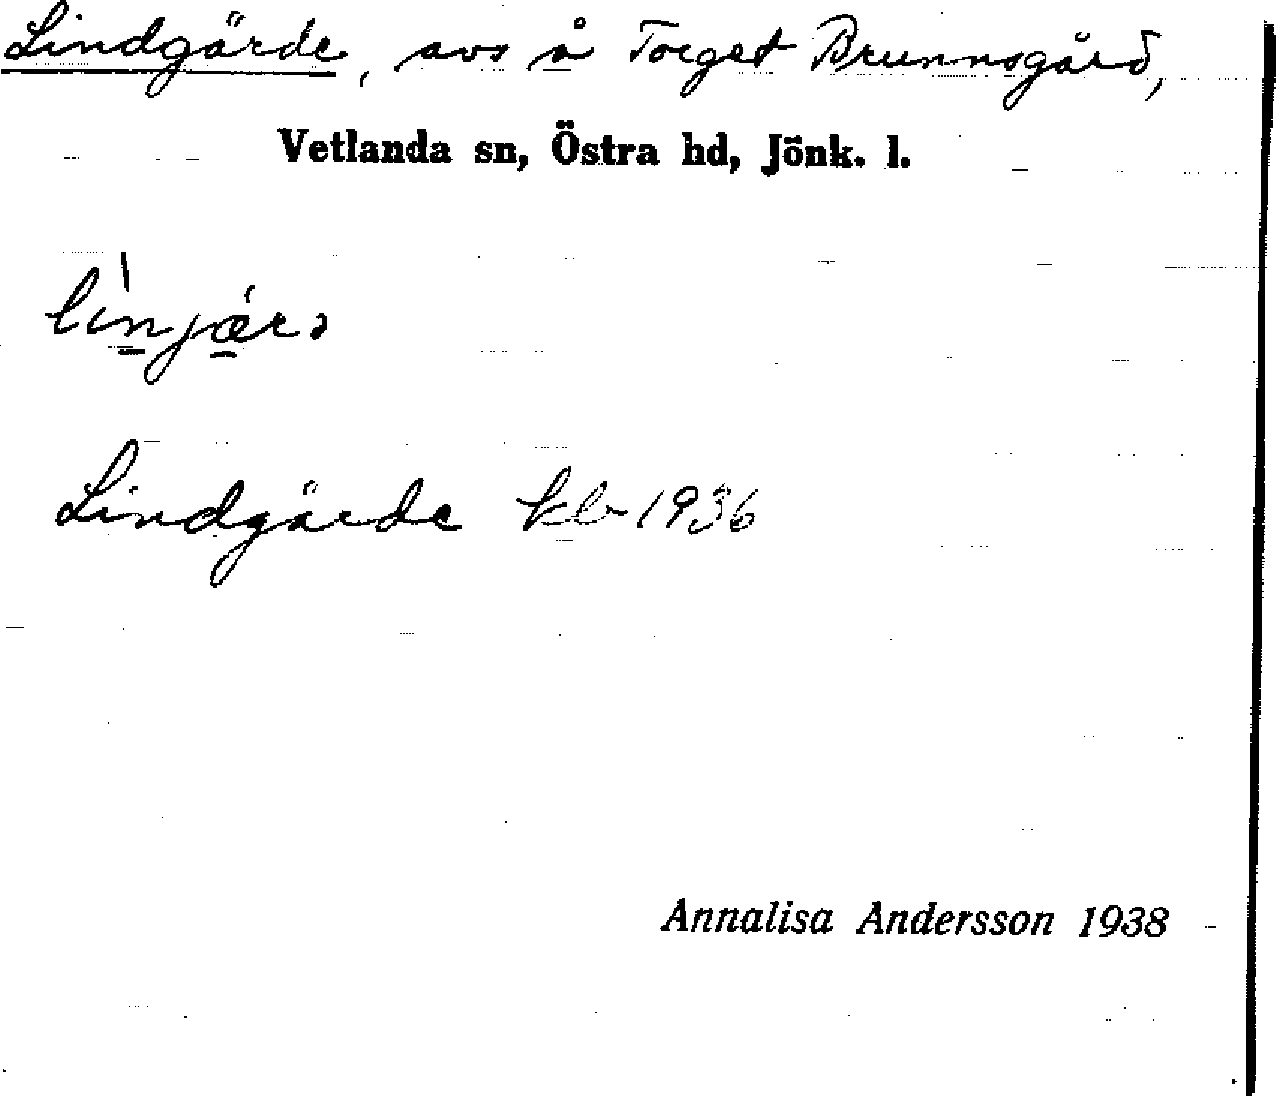 Lindgärde, avs å Torget Brunnsgård,
Vetlanda sn, Östra hd, Jönk. l.
Lindgärde kb 1936
Annalisa Andersson 1938